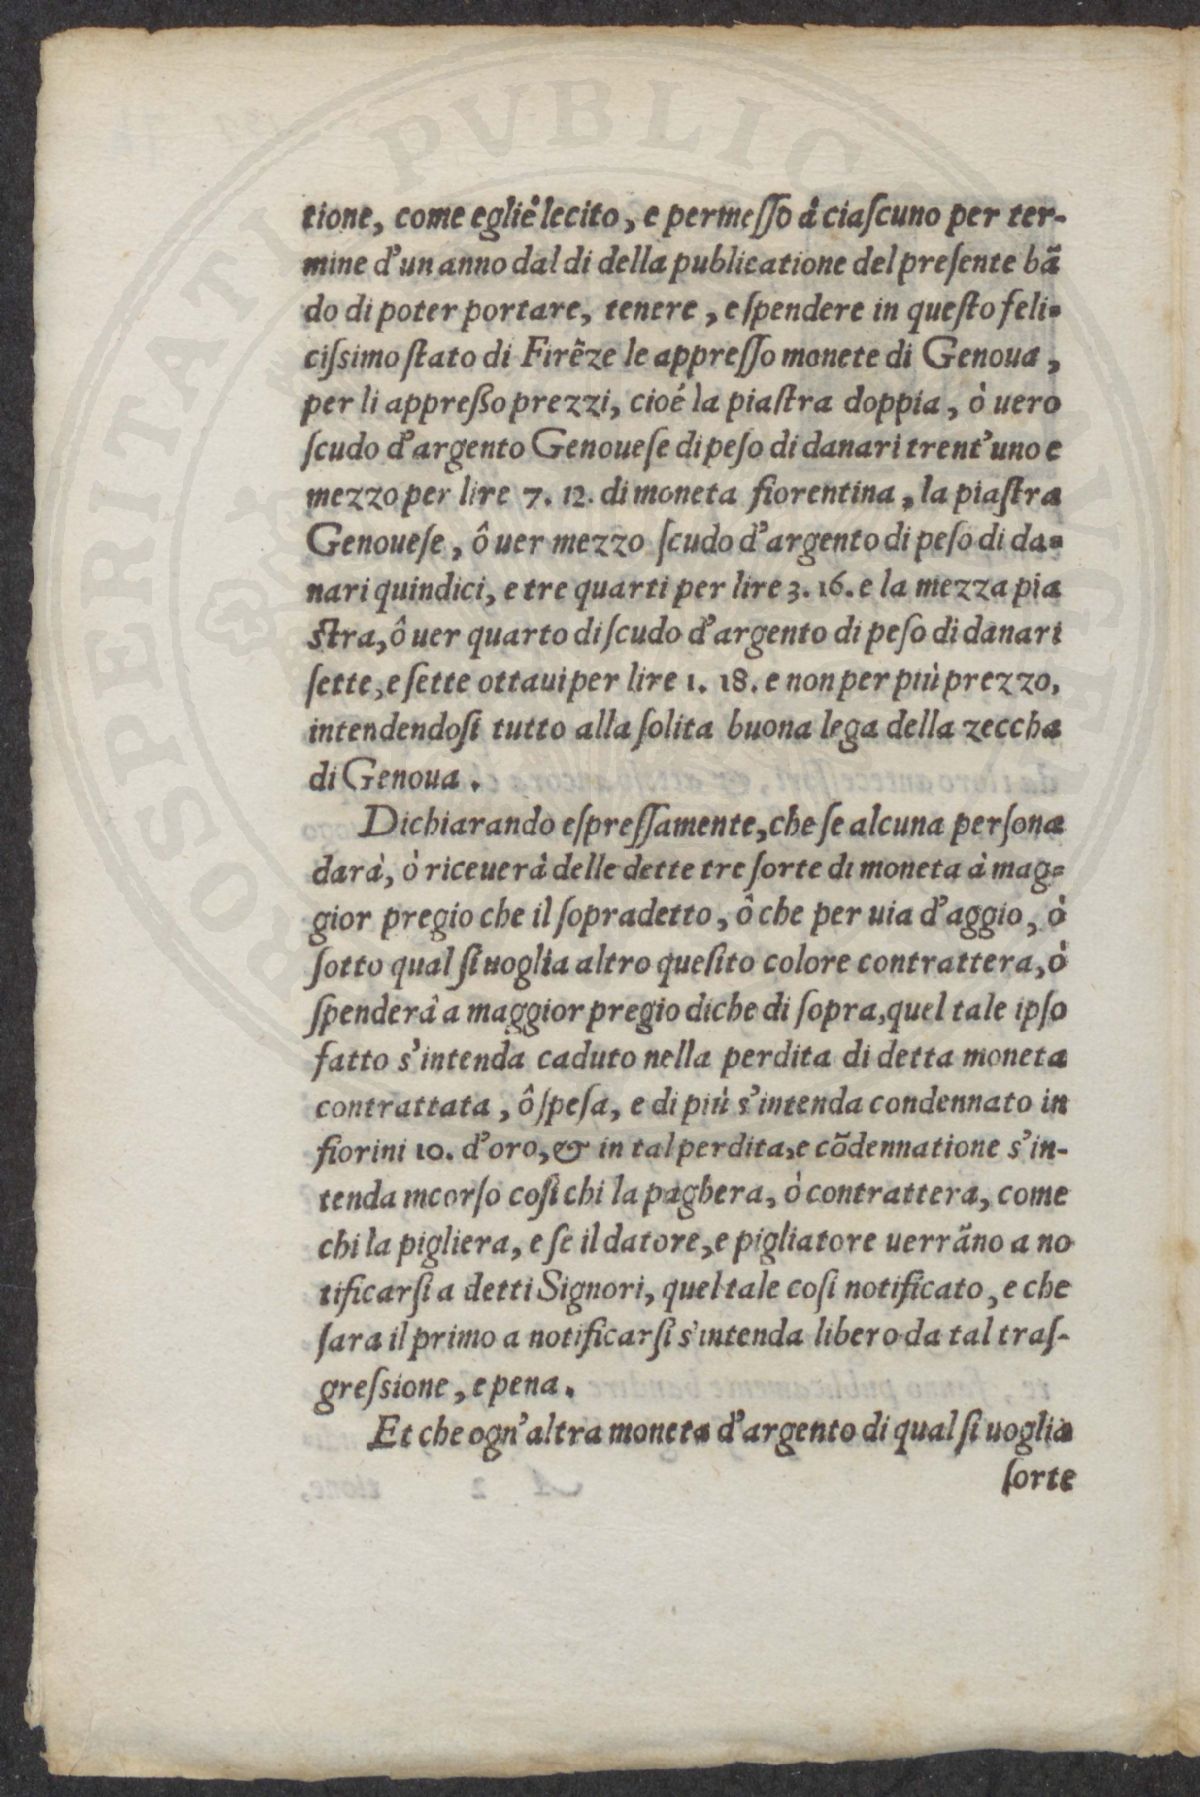 tione, come egliè lecito, e permeſſo à ciaſcuno per ter-
mine d'un anno dal di della publicatione del preſente bã
do di poter portare, tenere, e ſpendere in queſto feli-
ciſsimo ſtato di Firẽze le appreſſo monete di Genoua,
per li appreßo prezzi, cioé la piaſtra doppia, ò uero
ſcudo d'argento Genoueſe di peſo di danari trent'uno e
mezzo per lire 7. 12. di moneta fiorentina, la piaſtra
Genoueſe, ô uer mezzo ſcudo d'argento di peſo di da-
nari quindici, e tre quarti per lire 3. 16. e la mezza pia
ſtra, ô uer quarto di ſcudo d'argento di peſo di danari
ſette, e ſette ottaui per lire 1. 18. e non per più prezzo,
intendendoſi tutto alla ſolita buona lega della zeccha
di Genoua.
Dichiarando eſpreſſamente, che ſe alcuna perſona
darà, ò riceuerà delle dette tre ſorte di moneta à mag-
gior pregio che il ſopradetto, ô che per uia d'aggio, ò
ſotto qual ſi uoglia altro queſito colore contrattera, ò
ſpenderà a maggior pregio di che di ſopra, quel tale ipſo
fatto s'intenda caduto nella perdita di detta moneta
contrattata, ô ſpeſa, e di più s'intenda condennato in
fiorini 10. d'oro, & in tal perdita, e cõdennatione s'in-
tenda incorſo coſi chi la paghera, ò contrattera, come
chi la pigliera, e ſe il datore, e pigliatore uerrãno a no
tificarſi a detti Signori, quel tale coſi notificato, e che
ſara il primo a notificarſi s'intenda libero da tal traſ-
greſsione, e pena.
Et che ogn'altra moneta d'argento di qual ſi uoglia
ſorte
PROSPERITATI PVBLICAE